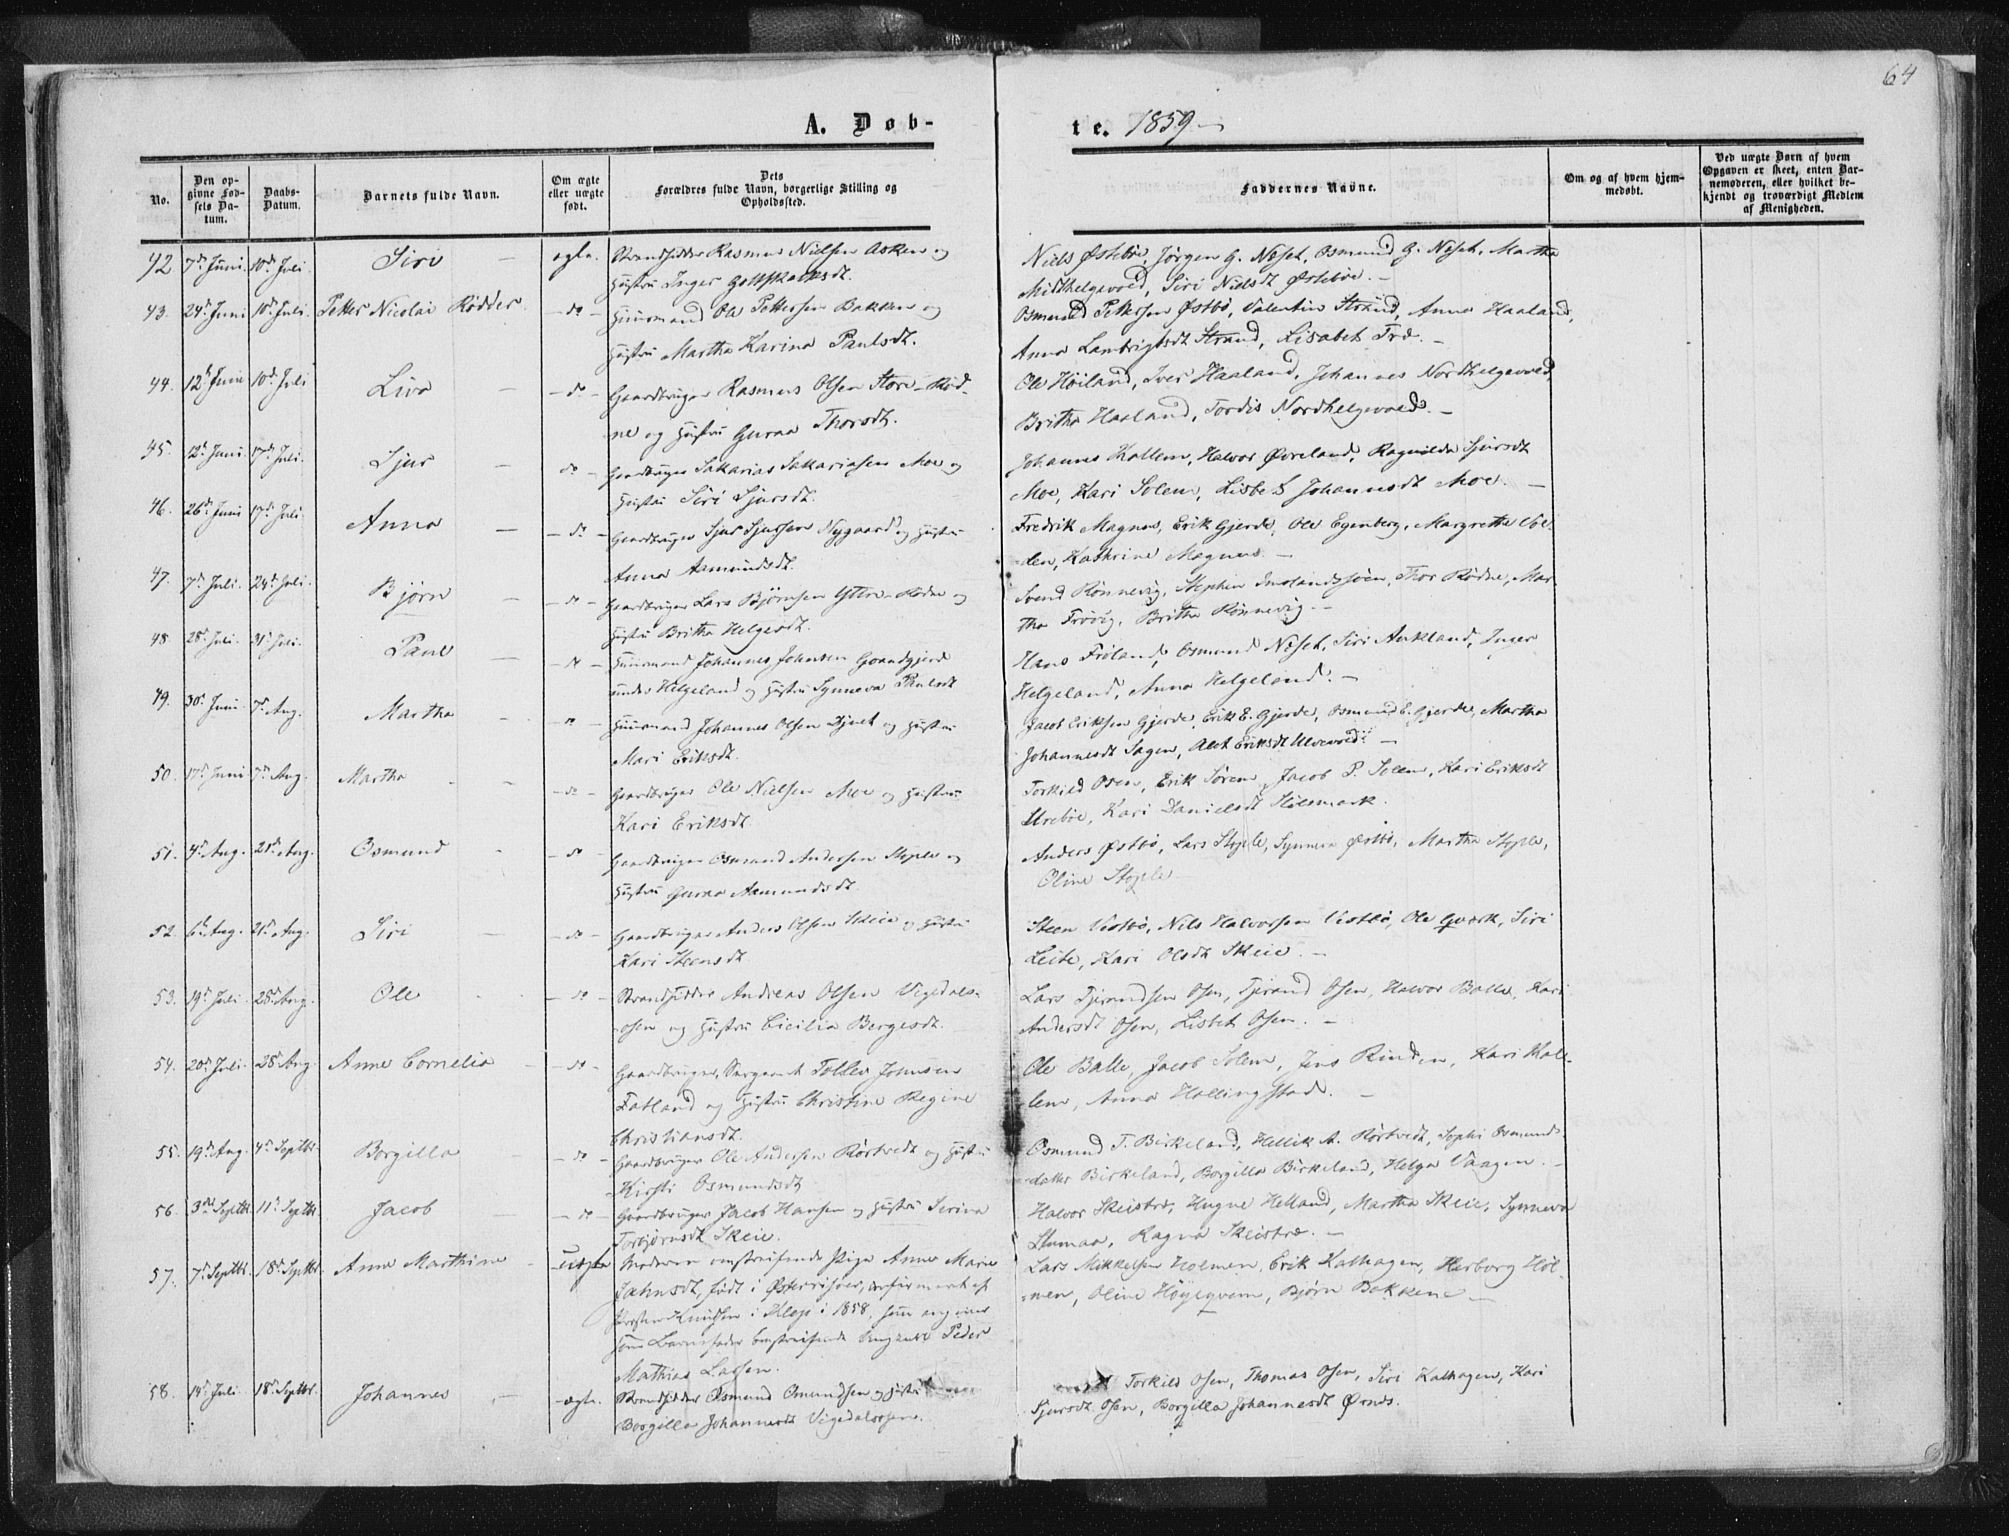 64
A. Døb-
te. 1859.
No.
Den op-
givne Fød-
sels Da-
tum.
Daabs-
Datum.
Barnets fulde Navn.
Om ægte
eller uægte
født.
Dets
Forældres fulde Navn, borgerlige Stilling og
Opholdssted.
Faddernes Navne.
Om og af hvem hjem-
medøbt.
Ved uægte Børn af hvem
Opgaven er skeet, enten Bar-
nemoderen, eller hvilket be-
kjendt og troværdigt Medlem
af Menigheden.
42 7de Juni 10de Juli. Siri — ægte. Strandsidder Rasmus Nielsen Asken og
Hustru Inger Gottskalksdt.
Niels Østebøe, Jørgen G. Neset, Osmund G. Neset, Martha
Midthelgevold, Siri Nielsdt Østebøe. —
43. 24de Juni 10de Juli. Petter Nicolai Rødder — do — Huusmand Ole Pettersen Bakken og
Hustru Martha Karina Paulsdt.
Osmund Pettersen Østbø, Valentin Strand, Anna Haaland,
Anna Lambrigtsdt Strand, Lisabet Træ. —
44. 12te Juni 10de Juli Liva — do — Gaardbruger Rasmus Olsen Store-Rød-
ne og Hustru Guraa Thorsdt.
Ole Høiland, Iver Haaland, Johannes Nordhelgevold,
Britha Haaland, Tordis Nordhelgevold. —
45. 12te Juni 17de Juli. Sjur — do — Gaardbruger Sakarias Sakariasen Moe og
Hustru Siri Sjursdt.
Johannes Hallem, Halvor Øvreland, Ragnilda Sjursdt
Moe, Kari Solem, Lisbet Johannesdt Moe. —
46. 26de Juni 17de Juli. Anna — do — Gaardbruger Sjur Sjursen Nygaard og Hustru
Anna Aamundsdt.
Fredrik Magnus, Erik Gjerde, Ole Egenberg, Margretha Vol-
den, Kathrine Magnus —
47. 7de Juli. 24de Juli. Bjørn — do — Gaardbruger Lars Bjørnsen Yttre-Rødne og
Hustru Britha Helgesdt.
Svend Rønnevig, Stephen Imslandssjøen, Thor Rødne, Mar-
tha Frøvig, Britha Rønnevig. —
48. 28de Juli. 31te Juli. Paul — do — Huusmand Johannes Johnsen Grandgjerd
under Helgeland og Hustru Synneva Paulsdt
Hans Frøland, Osmund Neset, Siri Aukland, Inger
Helgeland, Anna Helgeland. —
49. 30te Juni 7de Aug. Martha — do — Huusmand Johannes Olsen Djuet og Hustru
Mari Eriksdt.
Jacob Eriksen Gjerde, Erik E. Gjerde, Osmund E. Gjerde, Martha
Johannesdt Sagen, Alet Eriksdt Ulvevold. —
50. 17de Juni 7de Aug. Martha — do — Gaardbruger Ole Nielsen Moe og Hustru
Kari Eriksdt.
Torkild Osen, Erik Sørem, Jacob P. Solem, Kari Eriksdt
Urebøe, Kari Danielsdt Stølsmark.
51. 4de Aug. 21de Aug. Osmund — do — Gaardbruger Osmund Andersen Stople og
Hustru Guraa Aamundsdt
Anders Østbø, Lars Stople, Synneva Østbø, Martha Stople,
Oline Stople —
52. 6te Aug. 21de Aug. Siri — do — Gaardbruger Anders Olsen Skeie og Hustru
Kari Steensdt
Steen Vestbø, Nils Halvorsen Vestbø, Ole Qværk, Siri
Leite, Kari Olsdt Skeie. —
53. 19de Juli. 28de Aug. Ole — do — Strandsidder Andreas Olsen Vigedals-
osen og Hustru Cicilia Bergesdt.
Lars Tjerandsen Osen, Tjerand Osen, Halvor Balle, Kari
Andersdt Osen, Lisbet Osen. —
54. 20de Juli. 28de Aug. Anne Cornelia — do — Gaardbruger, Sergeant Tollev Johnsen
Fatland og Hustru Christine Regine
Christiansdt.
Ole Balle, Jacob Solem, Jens Rinden, Kari Hal-
lem, Anna Hallingstad. —
55. 19de Aug. 4de Septbr. Borgilla — do — Gaardbruger Ole Andersen Rørtvedt og Hustru
Kirsti Osmundsdt
Osmund T. Birkeland, Hellik A. Rørtvedt, Sophi Osmunds-
datter Birkeland, Borgilla Birkeland, Helga Vaagen. —
56. 3die Septbr. 11te Septbr. Jacob — do — Gaardbruger Jacob Hansen og Hustru Serina
Torbjørnsdt Skeie.
Halvor Skeistræ, Hugne Helland, Martha Skeie, Synneva
Stumaa, Ragna Skeistræ. —
57. 7de Septbr. 18de Septbr. Anne Marthine — uægte Moderen omstreifende Pige Anne Marie
Jahnsdt, født i Østerrisøer, confirmeret af
Præsten Knudsen i Klep i 1858, som angiver
som Barnefader omstreifende Peder
Mathias Larsen.
Lars Mikkelsen Holmen, Erik Kalhagen, Herborg Hol-
men, Oline Høyeqvem, Bjørn Bakken —
58. 14de Juli 18de Septbr. Johannes — ægte. Strandsidder Osmund Omundsen og Hustru
Borgilla Johannesdt Vigedalsosen.
Torkild Osen, Thomas Osen, Siri Kalhagen, Kari
Sjursdt Osen, Borgilla Johannesdt Ørnds.